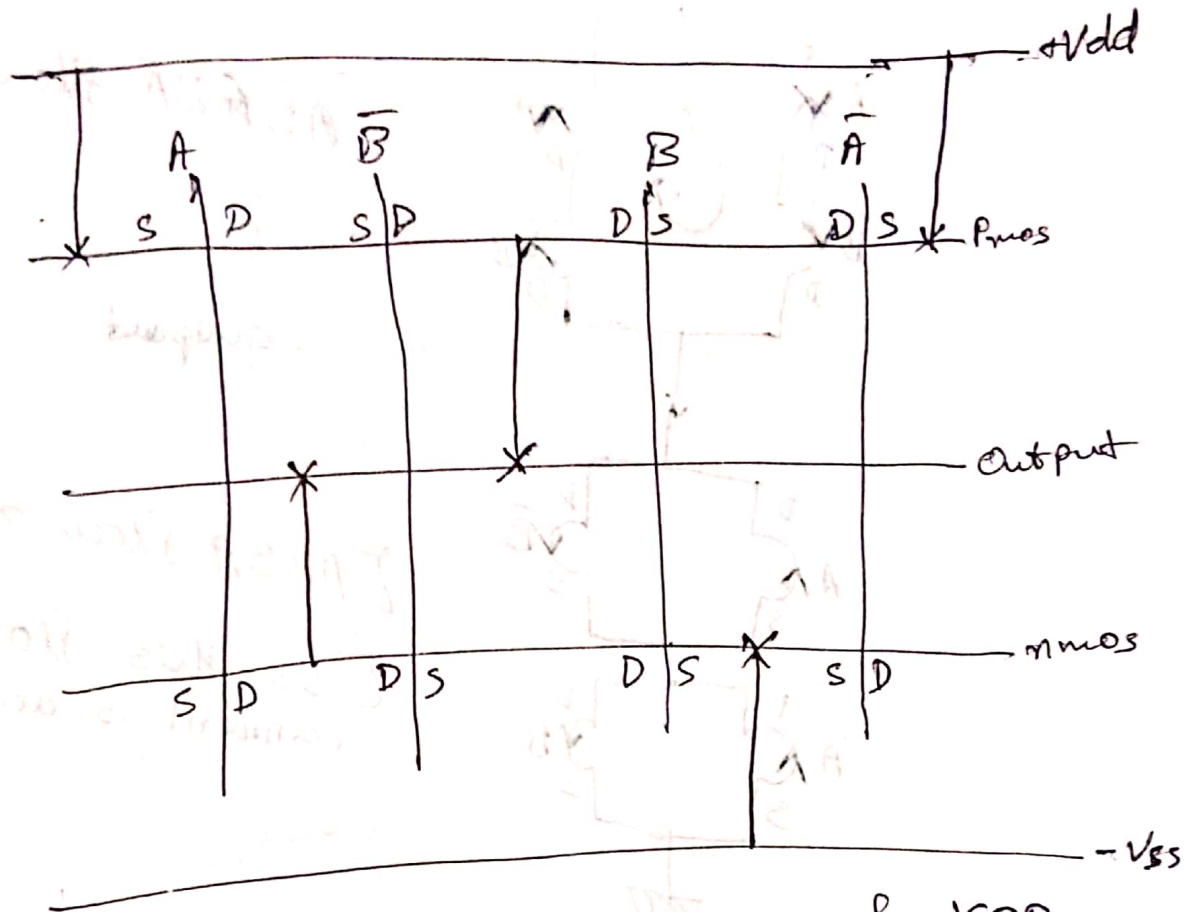 +Vdd
A B̅ B A̅
S D S D D S D S Pmos
Output
S D D S D S S D nmos
-Vss